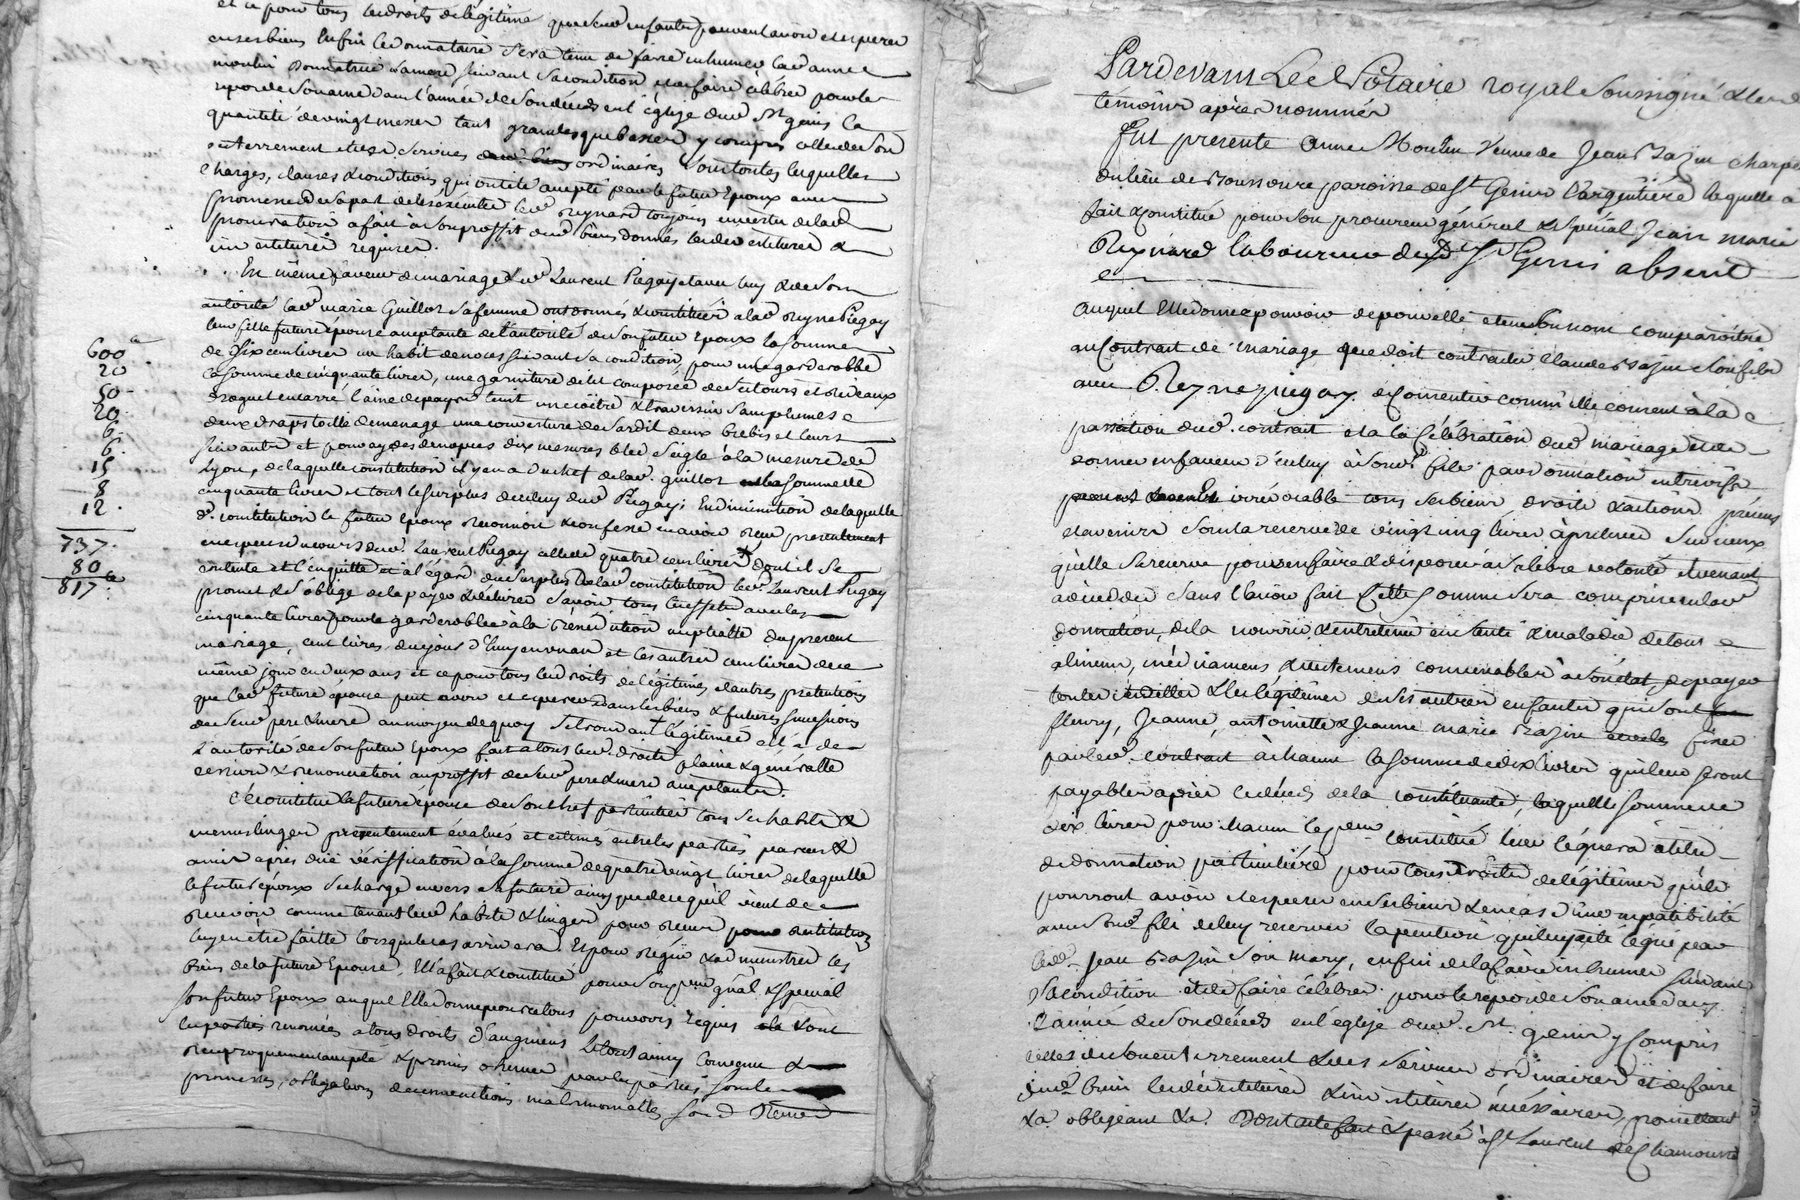 et ce pour tous les droits de légitime que ses d. enfants peuvent avoir et esperer
en ses biens Enfin le donnataire sera tenu de faire inhumer lad. anne
moulin Donnatrice sa mere suivant sa condition et de faire célébrer pour le
repos de son ame dans l'année de son décéds en l'église dud. St genis la
quantité de vingt messes tant grandes que basses y compris celles de son
enterrement et ses services ordinaires sous toutes lesquelles
charges, clauses & conditions qui ont été accepté par le futur Epoux avec
promesse de sa part de les exécuter led. Reynard toujours en vertu de lad.
procuration a fait à son proffit desd. biens donnés les devestitures &
investitures requises.
En même faveur de mariage led. Laurent Piegay et avec luy & de son
autorité lad. marie Guillot sa femme ont donnés & constitués a lad. Reyne Piegay
leur fille future épouse acceptante de l'autorité de son futur Epoux la somme
de six cent livres un habit de noces suivant sa condition, pour une garderobbe
la somme de cinquante livres, une garniture de lit composée de ses tours et rideaux
teint un coitre & traversin sans plumes
deux draps toille de menage une couverture deux brebis et leurs
suivants et dix mesures bled seigle à la mesure de
Lyon, de laquelle constitution il y en a du chef de lad. guillot la somme de
cinquante livres et tout le surplus de celuy dud. Piegay; En diminution de laquelle
d. constitution le futur Epoux reconnoit & confesse en avoir reçu presentement
en especes de cours dud. Laurent Piegay celle de quatre cent livres dont il se
contente et l'en quitte et à l'égard du surplus de lad. constitution led. Laurent Piegay
promet & s'oblige de la payer & délivrer savoir tous les effets avec les
cinquante livres pour la garderobbe à la bénédiction nuptialle du présent
mariage, cent livres du jour d'huy en un an et les autres cent livres de ce
même jour en deux ans et ce pour tous les droits de légitimes, et autres prétentions
que lad. future épouse peut avoir et esperer dans les biens & futures successions
de sesd. pere & mere au moyen de quoy se trouvant légitimée elle de
l'autorité de son futur Epoux fait a tous sesd. droits plaine & généralle
cession & renonciation au proffit de sesd. pere & mere acceptants.
Se constitue la future épouse de son chef particulier tous ses habits &
menus linges presentement évalués et estimés entre les parties parens &
amis après düe vériffication à la somme de quatre vingt livres de laquelle
le futur époux se charge envers sa future ainsy que de ce qu'il vient de
recevoir comme tenant lesd. habits & linges pour reçus pour restitution
luy en être faitte lorsque le cas arrivera. Et pour régir & administrer les
biens de la future Epouse, Elle a fait & constitué pour son pror. gnâl & spécial
son futur Epoux auquel Elle donne pour ce tous pouvoirs requis & ont
les parties renoncées a tous droits d'augment Le tout ainsy convenu &
reciproquement accepté & promis observer par les parties sous les
promesses, obligations
600 ª
20
50
20
6
6
15
8
12
737
80
817
Pardevant Le Notaire royal soussigné & les
témoins après nommés
Fut presente anne Moulin veuve de Jean Bazin charpe
du lieu de paroisse de St. Genis l'argentiere laquelle a
fait & constitué pour son procureur général & spécial Jean marie
Reynard laboureur dud. St. Genis absent
auquel Elle donne pouvoir de pour elle et en son nom comparoitre
au Contrat de mariage que doit contracter Claude Bazin son fils
avec Reyne piegay, de consentir comm'elle consent à la
passation dud. contrat et à la Célébration dud. mariage et de
donner en faveur d'iceluy à sond. fils par donnation entrevifs
irrévocable tous ses biens, droits & actions présens
et avenirs sous la reserve de vingt cinq livres à prendre sur iceux
qu'elle se reserve pour en faire & disposer à sa libre volonté et venant
à decedder sans l'avoir fait Cette somme sera comprise en lad.
donnation, de la nourrir & entretenir en santé & maladie de tous
alimens, médicamens & vetemens convenables à son état, de payer
toutes les légitimes de ses autres enfants qui sont
fleury, Jeanne, antoinette & Jeanne marie Bazin fixée
par led. contrat à chacun la somme de dix livres qui leur seront
payables après le décéds de la constituante, laquelle somme de
dix livres pour chacun led. pror. constitué leur léguera à titre
de donnation particulière pour tous droits de légitimes qu'ils
pourront avoir & esperer en ses biens & en cas d'incompatibilité
avec sond. fils de luy reserver la pention qui luy a été légué par
led. Jean Bazin son mary, enfin de la faire inhumer suivant
sa condition et de faire célébrer pour le repos de son ame dans
l'année de son décéds en l'église dud. St. genis y compris
celles de son enterrement & des services ordinaires et de faire
desd. biens les dévestitures & investitures nécéssaires, promettant
&a. obligeant &a. Dont acte fait & passé à St Laurent de Chamousset